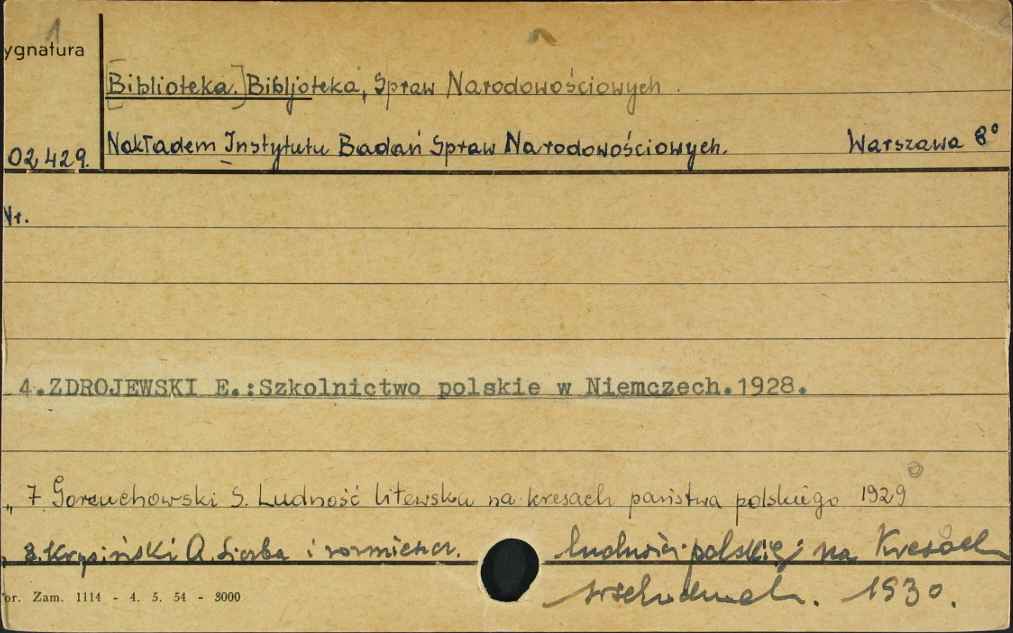 1
ygnatura
[Biblioteka.] Bibljoteka, Spraw Narodowościowych.
02,429. Nakładem Instytutu Badań Spraw Narodowościowych. Warszawa 8°
Nr.
4. ZDROJEWSKI E.:Szkolnictwo polskie w Niemczech.1928.
„ 7 Gorzuchowski S. Ludność litewska na kresach państwa polskiego 1929
8. Krysiński A. Liczba i rozmieszcz. ludności polskiej na Kresach
wschodnich. 1930.
or. Zam. 1114 - 4. 5. 54 - 3000